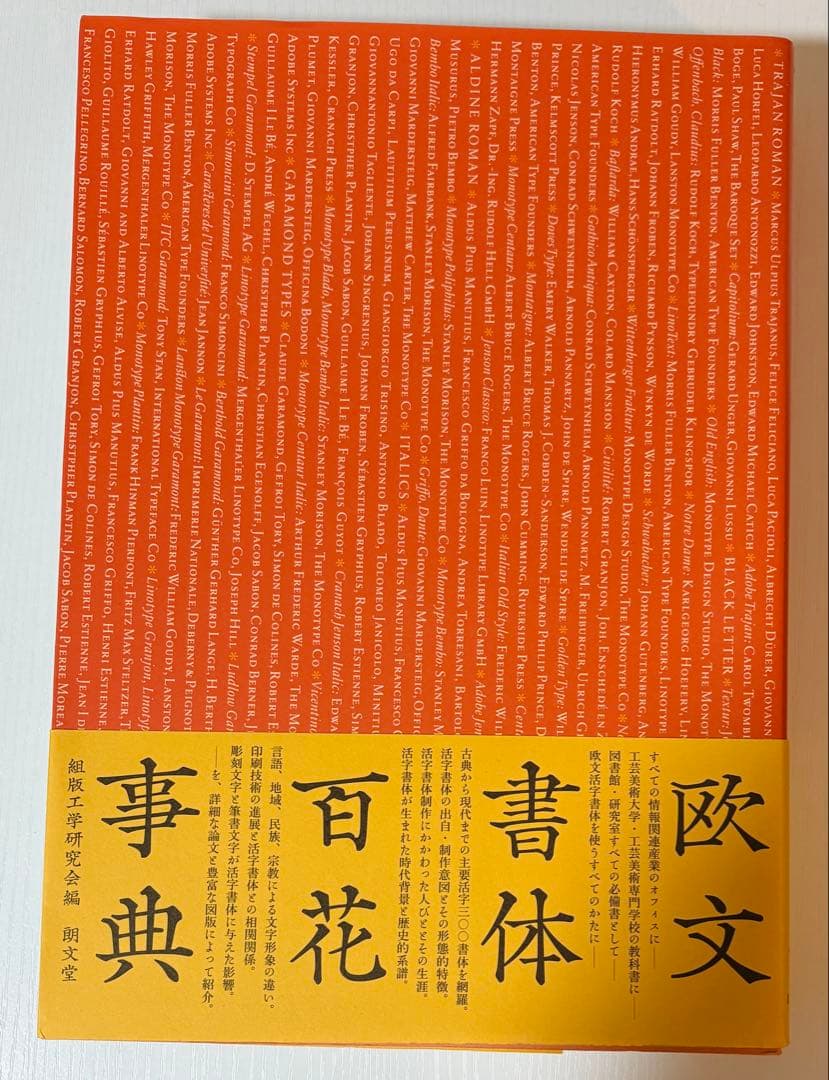 *TRAJAN ROMAN* MARCUS ULPIUS TRAJANUS, FELICE FELICIANO, LUCA PACIOLI, ALBRECHT DÜRER, GIOVANN
LUCA HORFEI, LEOPARDO ANTONOZZI, EDWARD JOHNSTON, EDWARD MICHAEL CATICH*Adobe Trajan: CAROL TWOMBL
BOGE, PAUL SHAW, THE BAROQUE SET*Capitolium: GERARD UNGER, GIOVANNI LUSSU*BLACK LETTER*Textur: J
Black: MORRIS FULLER BENTON, AMERICAN TYPE FOUNDERS*Old English: MONOTYPE DESIGN STUDIO, THE MONOT
Offenbach, Claudius: RUDOLF KOCH, TYPEFOUNDRY GEBRUDER KLINGSPOR*Notre Dame: KARLGEORG HOEFER, LI
WILLIAM GOUDY, LANSON MONOTYPE CO*LinoText: MORRIS FULLER BENTON, AMERICAN TYPE FOUNDERS, LINOTYPE
ERHARD RATDOLT, JOHANN FROBEN, RICHARD PYNSON, WYNKYN DE WORDE*Schwabacher: JOHANN GUTENBERG, AN
HIERONYMUS ANDRAE, HANS SCHÖNSPERGER*Wittenburger Fraktur: MONOTYPE DESIGN STUDIO, THE MONOTYPE CO
RUDOLF KOCH*Bastarda: WILLIAM CAXTON, COLARD MANSION*Civilité: ROBERT GRANJON, JOH. ENSCHEDÉ EN Z
AMERICAN TYPE FOUNDERS*Gothico Antiqua: CONRAD SCHWEYNHEIM, ARNOLD PANNARTZ, M. FREIBURGER, ULRICH G
NICOLAS JENSON, CONRAD SCHWEYNHEIM, ARNOLD PANNARTZ, JOHN DE SPIRE, WENDELI DE SPIRE*Golden Type: WIL
PRINCE, KELMSCOTT PRESS*Doves Type: EMERY WALKER, THOMAS J. COBDEN-SANDERSON, EDWARD PHILIP PRINCE, D
BENTON, AMERICAN TYPE FOUNDERS*Montaigne: ALBERT BRUCE ROGERS, JOHN CUMMING, RIVERSIDE PRESS*Cent
MONTAIGNE PRESS*Monotype Centaur: ALBERT BRUCE ROGERS, THE MONOTYPE CO*Italian Old Style: FREDERIC WIL
HERMANN ZAPF, DR.-ING. RUDOLF HELL GMBH*Jenson Classico: FRANCO LUIN, LINOTYPE LIBRARY GMBH*Adobe Jen
*ALDINE ROMAN*ALDUS PIUS MANUTIUS, FRANCESCO GRIFFO DA BOLOGNA, ANDREA TORRESANI, BARTOL
MUSURUS, PIETRO BEMBO*Monotype Poliphilus: STANLEY MORISON, THE MONOTYPE CO*Monotype Bembo: STANLEY M
Bembo Italic: ALFRED FAIRBANK, STANLEY MORISON, THE MONOTYPE CO*Griffo, Dante: GIOVANNI MARDERSTEIG, OFFIC
GIOVANNI MARDERSTEIG, MATTHEW CARTER, THE MONOTYPE CO*ITALICS*ALDUS PIUS MANUTIUS, FRANCESCO G
UGO DA CARPI, LAUTITIUM PERUSINUM, GIANGIORGIO TRISINO, ANTONIO BLADO, TOLOMBO JANICOLO, MINITIU
GIOVANNANTONIO TAGLIENTE, JOHANN SINGRENIUS, JOHANN FROBEN, SÉBASTIEN GRYPHIUS, ROBERT ESTIENNE, SIM
GRANJON, CHRISTPHER PLANTIN, JACOB SABON, GUILLAUME I LE BÉ, FRANÇOIS GUYOT*Cranach Jenson Italic: EDWA
KESSLER, CRANACH PRESS*Monotype Blado, Monotype Bembo Italic: STANLEY MORISON, THE MONOTYPE CO
PLUMET, GIOVANNI MARDERSTEIG, OFFICINA BODONI*Monotype Centaur Italic: ARTHUR FREDERIC WARDE, THE MO
ADOBE SYSTEMS INC*GARAMOND TYPES*CLAUDE GARAMOND, GEFROI TORY, SIMON DE COLINES, ROBERT E
GUILLAUME I LE BÉ, ANDRÉ WECHEL, CHRISTPHER PLANTIN, CHRISTIAN EGENOLFF, JACOB SABON, CONRAD BERNER, J
*Stempel Garamond: D. STEMPEL AG*Linotype Garamond: MERGENTHALER LINOTYPE CO, JOSEPH HILL*Ludlow Gar
TYPOGRAPH CO*Simoncini Garamond: FRANCO SIMONCINI*Berthold Garamond: GÜNTHER GERHARD LANGE, H. BERTH
ADOBE SYSTEMS INC*Caractères de l'Université: JEAN JANNON*Le Garamont: IMPRIMERIE NATIONALE, DEBERNY & PEIGNOT
MORRIS FULLER BENTON, AMERICAN TYPE FOUNDERS*Lanston Monotype Garamond: FREDERIC WILLIAM GOUDY, LANSTON
MORISON, THE MONOTYPE CO*ITC Garamond: TONY STAN, INTERNATIONAL TYPEFACE CO*Linotype Granjon, Linotype
HAWLEY GRIFFITH, MERGENTHALER LINOTYPE CO*Monotype Plantin: FRANK HINMAN PIERPONT, FRITZ MAX STELTZER, T
ERHARD RATDOLT, GIOVANNI AND ALBERTO ALVISE, ALDUS PIUS MANUTIUS, FRANCESCO GRIFFO, HENRI ESTIENNE,
GIOLITO, GUILLAUME ROUILLÉ, SÉBASTIEN GRYPHIUS, GEFROI TORY, SIMON DE COLINES, ROBERT ESTIENNE, JEAN I D
FRANCESCO PELLEGRINO, BERNARD SALOMON, ROBERT GRANJON, CHRISTPHER PLANTIN, JACOB SABON, PIERRE MOREA
欧文
すべての情報関連産業のオフィスに――
工芸美術大学・工芸美術専門学校の教科書に――
図書館・研究室すべての必備書として――
欧文活字書体を使うすべてのかたに――
書体
古典から現代までの主要活字三〇〇書体を網羅。
活字書体の出自・制作意図とその形態的特徴。
活字書体制作にかかわった人びととその生涯。
活字書体が生まれた時代背景と歴史的系譜。
百花
言語、地域、民族、宗教による文字形象の違い。
印刷技術の進展と活字書体との相関関係。
彫刻文字と筆書文字が活字書体に与えた影響。
――を、詳細な論文と豊富な図版によって紹介。
事典
組版工学研究会編 朗文堂